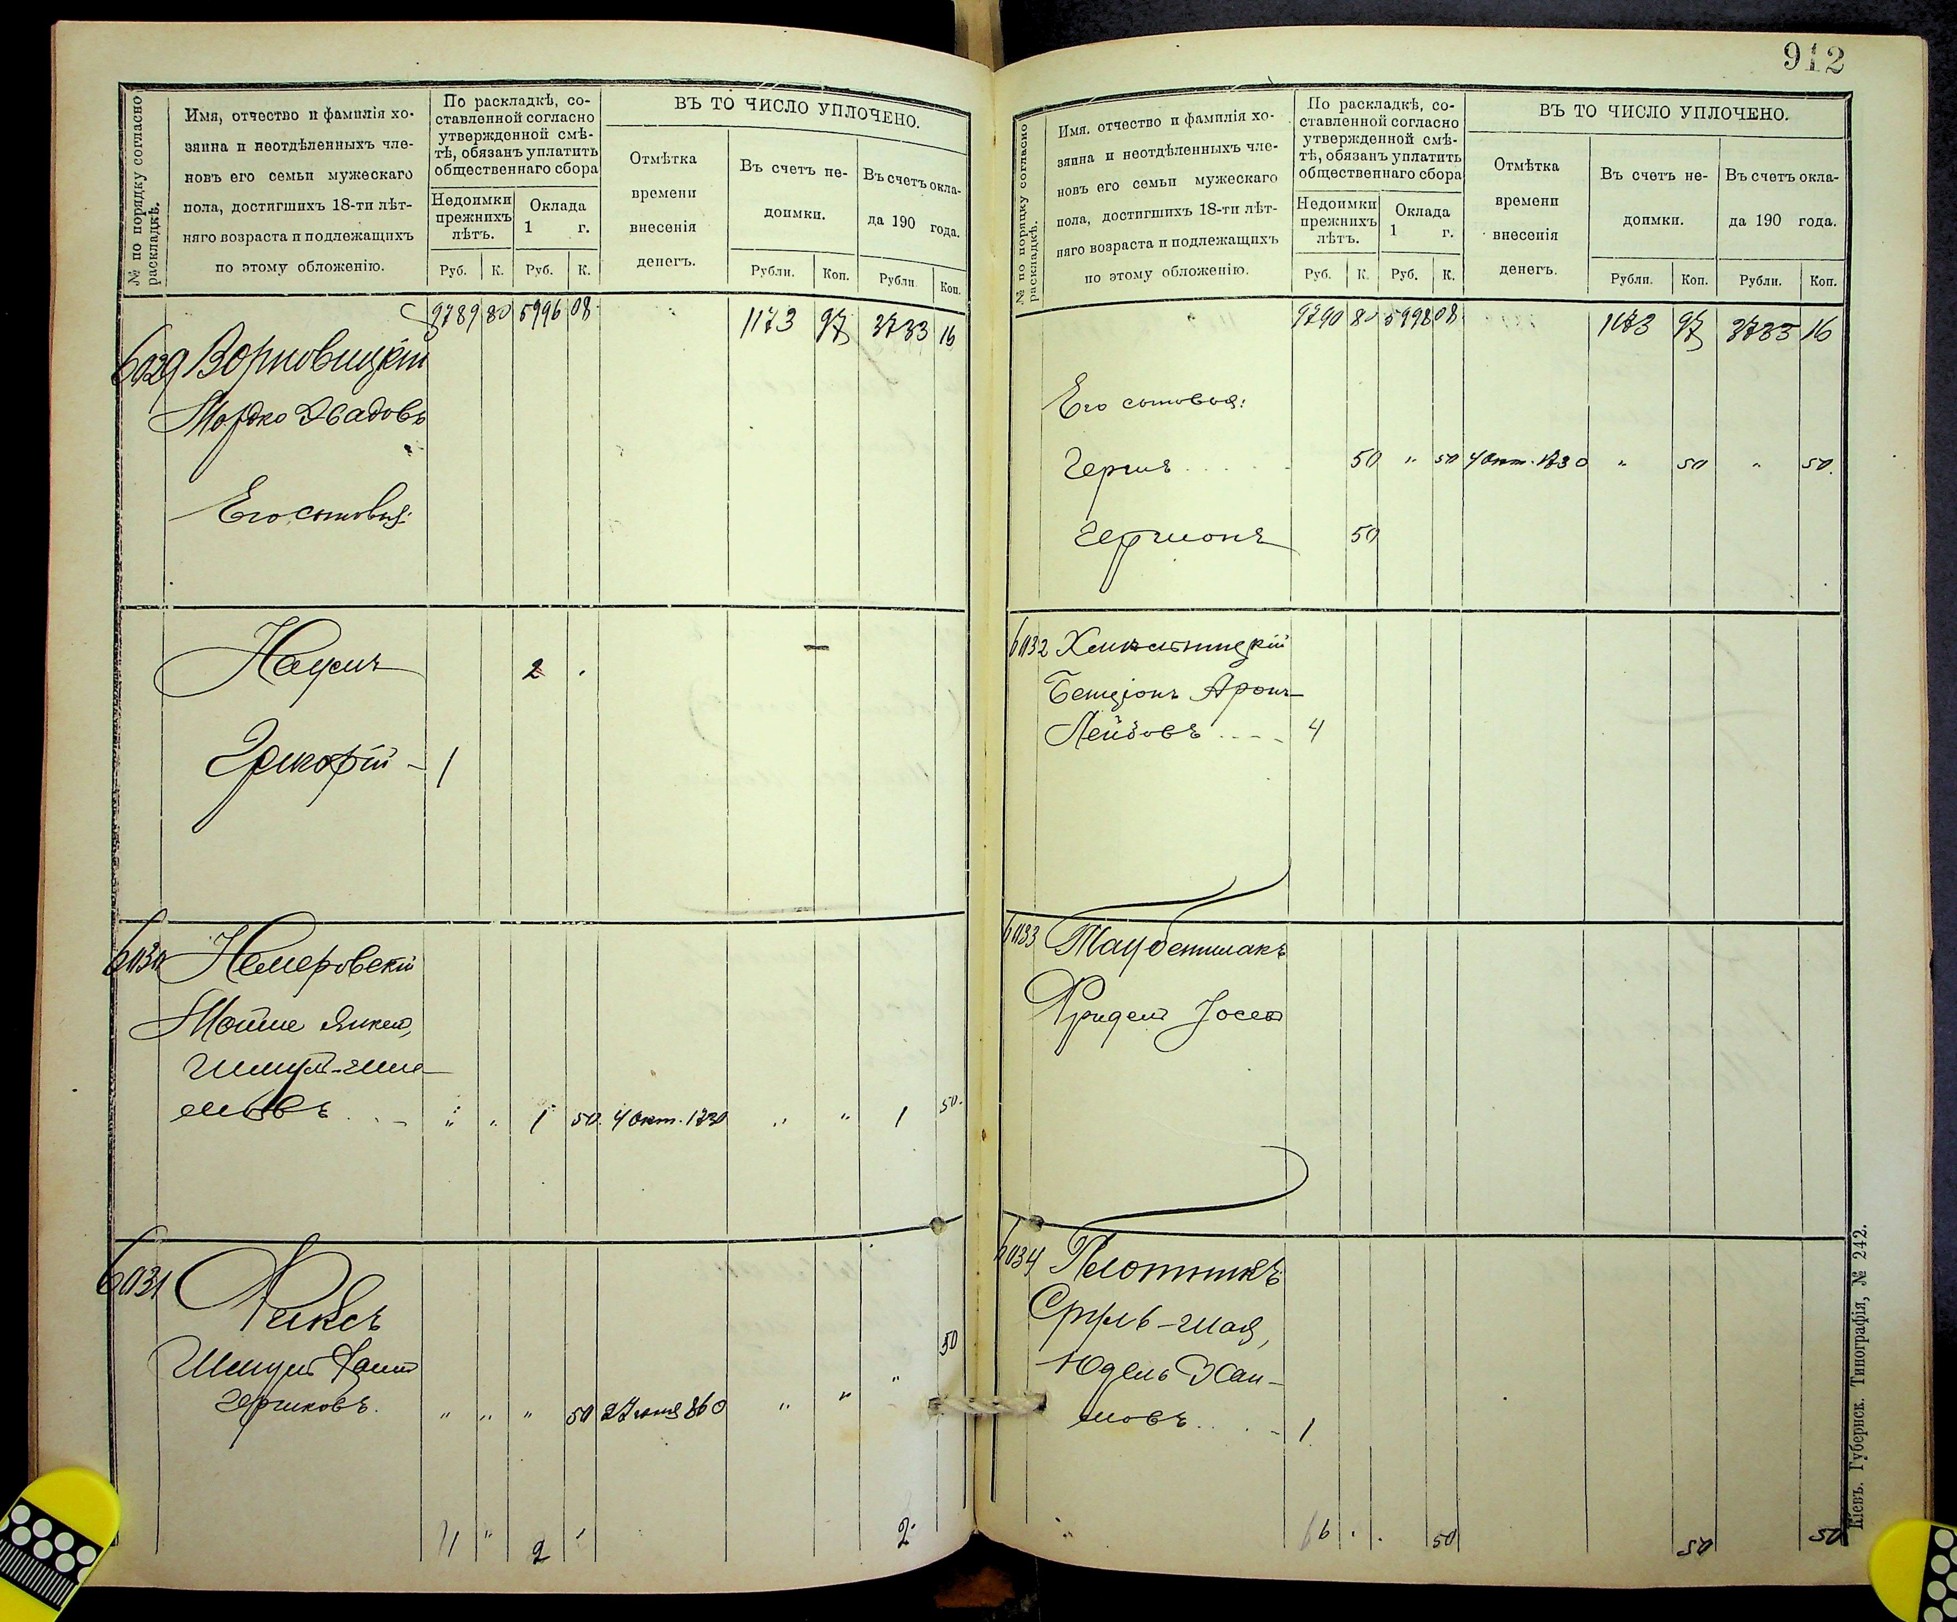 № по порядку согласно раскладкѣ.
Имя, отчество и фамилія хо-
зяина и неотдѣленныхъ чле-
новъ его семьи мужескаго
пола, достигшихъ 18-ти лѣт-
няго возраста и подлежащихъ
по этому обложенію.
По раскладкѣ, со-
ставленной согласно
утвержденной смѣ-
тѣ, обязанъ уплатить
общественнаго сбора
Недоимки
прежнихъ
лѣтъ.
Оклада
1 г.
Руб. К. Руб. К.
ВЪ ТО ЧИСЛО УПЛОЧЕНО.
Отмѣтка
времени
внесенія
денегъ.
Въ счетъ не-
доимки.
Въ счетъ окла-
да 190 года.
Рубли. Коп. Рубли Коп.
9789 80 5996 08 1173 97 3733 16
6029
Мордко
Его сыновья:
Наумъ 2
1
6030 Немеровскій
Мойше Янкел,
Шмул-Шле-
мовъ " " 1 50 4 Окт. 1730 " " 1 50
6031
Шмуль Хаим
Гершковъ. " " " 50 860 " " " 50
11 " 2 2
912
№ по порядку согласно раскладкѣ.
Имя, отчество и фамилія хо-
зяина и неотдѣленныхъ чле-
новъ его семьи мужескаго
пола, достигшихъ 18-ти лѣт-
няго возраста и подлежащихъ
по этому обложенію.
По раскладкѣ, со-
ставленной согласно
утвержденной смѣ-
тѣ, обязанъ уплатить
общественнаго сбора
Недоимки
прежнихъ
лѣтъ.
Оклада
1 г.
Руб. К. Руб. К.
ВЪ ТО ЧИСЛО УПЛОЧЕНО.
Отмѣтка
времени
внесенія
денегъ.
Въ счетъ не-
доимки.
Въ счетъ окла-
да 190 года.
Рубли. Коп. Рубли. Коп.
9790 80 5998 08 1173 97 3733 16
Его сыновья:
Гершъ 50 " 50 4 Окт. 1730 " 50 " 50
Гершонъ 50
6032 Хмельницкій
Бенціонъ Аронъ-
Лейбовъ 4
6033 Таубеншлакъ
Фридель Іосел
6034 Плотникъ
Сруль-Шая,
Юдель Хаи-
мовъ 1
6 50 50 50
Кіевъ. Губернск. Типографія, № 242.